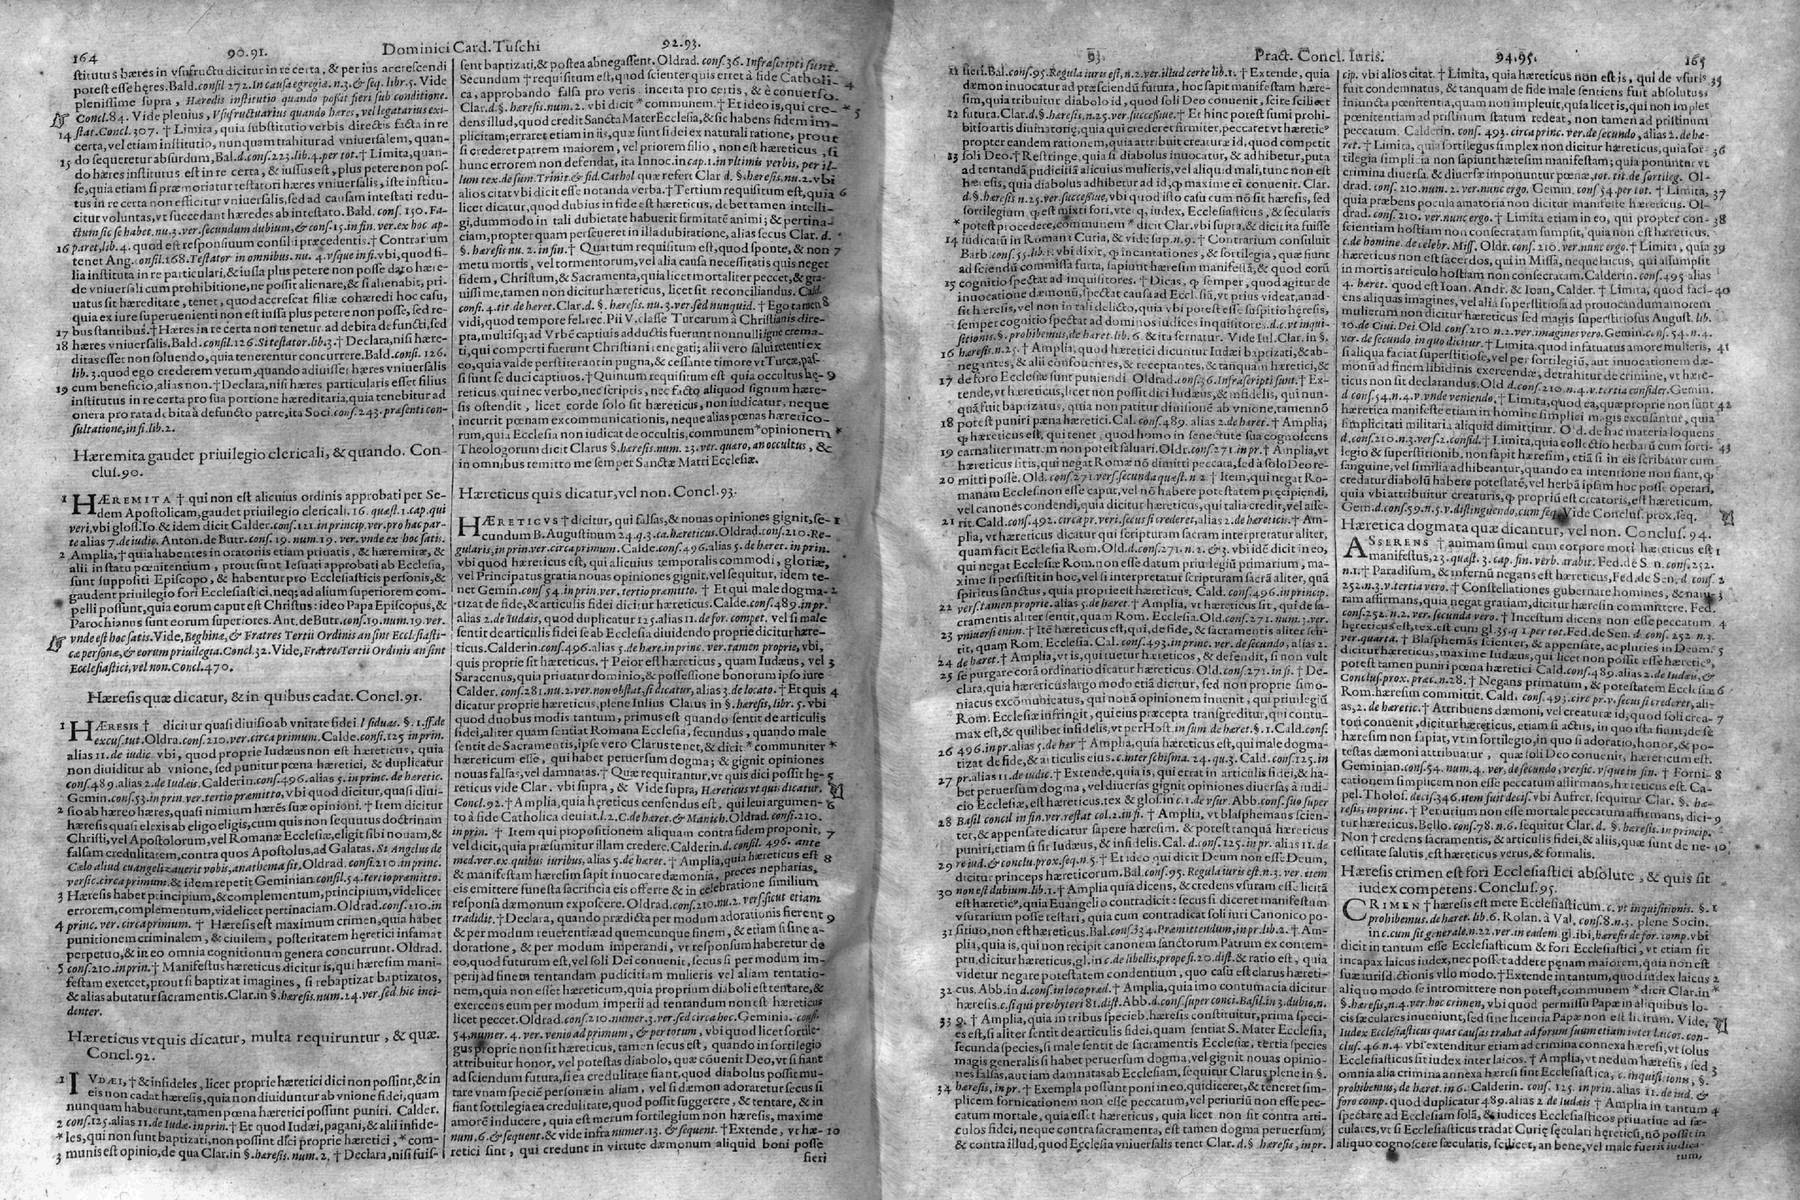 164 90.91. Dominici Card. Tuschi 92.93.
stitutus hæres in vsufructu dicitur in re certa, & per ius accrescendi
potest esse hęres. Bald. consil 272. In causa egregia. n.3. & seq. libr.5. Vide
plenissime supra, Hæredis institutio quando possit fieri sub conditione.
Concl.84. Vide plenius, Vsufructuarius quando hæres, vel legatarius exi-
14 stat. Concl.307. † Limita, quia substitutio verbis directis facta in re
certa, vel etiam institutio, nunquam trahitur ad vniuersalem, quan-
15 do sequeretur absurdum, Bal. d. cons.223. lib.4. per tot. † Limita, quan-
do hæres institutus est in re certa, & iussus est, plus petere non pos-
se, quia etiam si præmoriatur testatori hæres vniuersalis, iste institu-
tus in re certa non efficitur vniuersalis, sed ad causam intestati redu-
citur voluntas, vt succedant hæredes ab intestato. Bald. cons. 150. Fa-
ctum sic se habet. nu.3. ver. secundum dubium, & cons.15. in fin. ver. ex hoc ap-
16 paret, lib.4. quod est responsiuum consilii præcedentis. † Contrarium
tenet Ang. consil.168. Testator in omnibus. nu. 4. vsque in fi. vbi, quod fi-
lia instituta in re particulari, & iussa plus petere non posse dato hære-
de vniuersali cum prohibitione, ne possit alienare, & si alienabit, pri-
uatus sit hæreditate, tenet, quod accrescat filiæ cohæredi hoc casu,
quia ex iure superuenienti non est iussa plus petere non posse, sed re-
17 bus stantibus. † Hæres in re certa non tenetur ad debita defuncti, sed
18 hæres vniuersalis. Bald. consil.126. Si testator lib.3. † Declara, nisi hære-
ditas esset non soluendo, quia tenerentur concurrere. Bald. consi. 126.
lib.3. quod ego crederem verum, quando adiuisset hæres vniuersalis
19 cum beneficio, alias non. † Declara, nisi hæres particularis esset filius
institutus in re certa pro sua portione hæreditaria, quia tenebitur ad
onera pro rata debita à defuncto patre, ita Soci. cons.243. præsenti con-
sultatione, in fi. lib.2.
Hæremita gaudet priuilegio clericali, & quando. Con-
clus.90.
1 HÆREMITA † qui non est alicuius ordinis approbati per Se-
dem Apostolicam, gaudet priuilegio clericali. 16. quæst.1. cap. qui
veri, vbi glos. Io. & idem dicit Calder. cons.121. in princip. ver. pro hac par-
te alias 7. de iudic. Anton. de Butr. cons. 19. num.19. ver. vnde ex hoc satis.
2 Amplia, † quia habentes in oratoriis etiam priuatis, & hæremitæ, &
alii in statu pœnitentium, prout sunt Iesuati approbati ab Ecclesia,
sunt suppositi Episcopo, & habentur pro Ecclesiasticis personis, &
gaudent priuilegio fori Ecclesiastici, neq; ad alium superiorem com-
pelli possunt, quia eorum caput est Christus: ideo Papa Episcopus, &
Parochianus sunt eorum superiores. Ant. de Butr. cons.19. num.19. ver.
vnde est hoc satis. Vide, Beghinæ, & Fratres Tertii Ordinis an sint Ecclesiasti-
cæ personæ, & eorum priuilegia. Concl.32. Vide, Fratres Tertii Ordinis an sint
Ecclesiastici, vel non. Concl.470.
Hæresis quæ dicatur, & in quibus cadat. Concl.91.
1 HÆRESIS † dicitur quasi diuisio ab vnitate fidei. l si duas. §.1. ff. de
excus. tut. Oldra. cons.210. ver. circa primum. Calde. consi.125. in prin.
alias 11. de iudic. vbi, quod proprie Iudæus non est hæreticus, quia
non diuiditur ab vnione, sed punitur pœna hæretici, & duplicatur
cons.489. alias 2. de Iudæis. Calderin. cons.496. alias 5. in princ. de hæretic.
Gemin. cons.53. in prin. ver. tertio præmitto, vbi quod dicitur, quasi diui-
2 sio ab hæreo hæres, quasi nimium hærens suæ opinioni. † Item dicitur
hæresis quasi elexis ab eligo eligis, cum quis non sequutus doctrinam
Christi, vel Apostolorum, vel Romanæ Ecclesiæ, eligit sibi nouam, &
falsam credulitatem, contra quos Apostolus, ad Galatas. Si Angelus de
Cælo aliud euangelizauerit vobis, anathema sit, Oldrad. cons.210. in princ.
versic. circa primum. & idem repetit Geminian. consil.54. tertio præmitto.
3 Hæresis habet principium, & complementum, principium, videlicet
errorem, complementum, videlicet pertinaciam. Oldrad. cons.210. in
4 princ. ver. circa primum. † Hæresis est maximum crimen, quia habet
punitionem criminalem, & ciuilem, posteritatem hęretici infamat
perpetuo, & in eo omnia cognitionum genera concurrunt. Oldrad.
5 cons.210. in prin. † Manifestus hæreticus dicitur is, qui hæresim mani-
festam exercet, prout si baptizat imagines, si rebaptizat baptizatos,
& alias abutatur sacramentis. Clar. in §. hæresis. num.24. ver. sed hic inci-
denter.
Hæreticus vt quis dicatur, multa requiruntur, & quæ.
Concl.92.
1 IVDÆI, † & infideles, licet proprie hæretici dici non possint, & in
eis non cadat hæresis, quia non diuiduntur ab vnione fidei, quam
nunquam habuerunt, tamen pœna hæretici possunt puniri. Calder.
2 cons.125. alias 11. de Iudæ. in prin. † Et quod Iudæi, pagani, & alii infide-
* les, qui non sunt baptizati, non possint dici proprie hæretici, * com-
3 munis est opinio, de qua Clar. in §. hæresis. num. 2. † Declara, nisi fuis-
sent baptizati, & postea abnegassent. Oldrad. cons.36. Infrascripti sunt.
Secundum † requisitum est, quod scienter quis erret à fide Catholi- 4
ca, approbando falsa pro veris, incerta pro certis, & è conuerso.
Clar. d. §. hæresis. num.2. vbi dicit * communem. † Et ideo is, qui cre- * 5
dens illud, quod credit Sancta Mater Ecclesia, & sic habens fidem im-
plicitam; erraret etiam in iis, quæ sunt fidei ex naturali ratione, prout
si crederet patrem maiorem, vel priorem filio, non est hæreticus, si
hunc errorem non defendat, ita Innoc. in cap.1. in vltimis verbis, per il-
lum tex. de sum. Trinit. & fid. Cathol. quæ refert Clar. d. §. hæresis. nu.2. vbi
alios citat vbi dicit esse notanda verba. † Tertium requisitum est, quia 6
licet dicatur, quod dubius in fide est hæreticus, debet tamen intelli-
gi, dummodo in tali dubietate habuerit firmitatem animi; & pertina-
ciam, propter quam perseueret in illa dubitatione, alias secus Clar. d.
§. hæresis nu.2. in fin. † Quartum requisitum est, quod sponte, & non 7
metu mortis, vel tormentorum, vel alia causa necessitatis quis neget
fidem, Christum, & Sacramenta, quia licet mortaliter peccet, & gra-
uissime, tamen non dicitur hæreticus, licet sit reconciliandus. Cald.
consi.4. tit. de hæret. Clar. d. §. hæresis. nu.3. ver. sed nunquid. † Ego tamen 8
vidi, quod tempore fel. rec. Pii V. classe Turcarum à Christianis dire-
pta, multisq; ad Vrbē captiuis adductis fuerunt nonnulli igne crema-
ti, qui comperti fuerunt Christiani renegati; alii vero saluti retenti ex
eo, quia valde perstiterant in pugna, & cessante timore vt Turcæ, pas-
si sunt se duci captiuos. † Quintum requisitum est quia occultus hę- 9
reticus, qui nec verbo, nec scriptis, nec facto aliquod signum hære-
sis ostendit, licet corde solo sit hæreticus, non iudicatur, neque
incurrit pœnam excommunicationis, neque alias pœnas hæretico-
rum, quia Ecclesia non iudicat de occultis, communem * opinionem *
Theologorum dicit Clarus §. hæresis. num. 23. ver. quæro, an occultus, &
in omnibus remitto me semper Sanctæ Matri Ecclesiæ.
Hæreticus quis dicatur, vel non. Concl.93.
HÆRETICVS † dicitur, qui falsas, & nouas opiniones gignit, se- 1
cundum B. Augustinum 24. q.3. ca. hæreticus. Oldrad. cons.210. Re-
gularis, in prin. ver. circa primum. Calde. cons.496. alias 5. de hæret. in prin.
vbi quod hæreticus est, qui alicuius temporalis commodi, gloriæ,
vel Principatus gratia nouas opiniones gignit, vel sequitur, idem te-
net Gemin. cons 54. in prin. ver. tertio præmitto. † Et qui male dogma- 2
tizat de fide, & articulis fidei dicitur hæreticus. Calde. cons.489. in pr.
alias 2. de Iudæis, quod duplicatur 125. alias 11. de for. compet. vel si male
sentit de articulis fidei se ab Ecclesia diuidendo proprie dicitur hære-
ticus. Calderin. cons.496. alias 5. de hære. in princ. ver. tamen proprie, vbi,
quis proprie sit hæreticus. † Peior est hæreticus, quam Iudæus, vel 3
Saracenus, quia priuatur dominio, & possessione bonorum ipso iure
Calder. cons.281. nu.2. ver. non obstat, si dicatur, alias 3. de locato. † Et quis 4
dicatur proprie hæreticus, plene Iulius Clarus in §. hæresis, libr. 5. vbi
quod duobus modis tantum, primus est quando sentit de articulis
fidei, aliter quam sentiat Romana Ecclesia, secundus, quando male
sentit de Sacramentis, ipse vero Clarus tenet, & dicit * communiter *
hæreticum esse, qui habet peruersum dogma; & gignit opiniones
nouas falsas, vel damnatas. † Quæ requirantur, vt quis dici possit hę- 5
reticus vide Clar. vbi supra, & Vide supra, Hæreticus vt quis dicatur.
Concl.92. † Amplia, quia hęreticus censendus est, qui leui argumen- 6
to à fide Catholica deuiat. l.2. C. de hæret. & Manich. Oldrad. cons.210.
in prin. † Item qui propositionem aliquam contra fidem proponit, 7
vel dicit, quia præsumitur illam credere. Calderin. d. consil. 496. ante
med. ver. ex quibus iuribus, alias 5. de hæret. † Amplia, quia hæreticus est 8
& manifestam hæresim sapit inuocare dæmonia, preces nepharias,
eis emittere funesta sacrificia eis offerre & in celebratione similium
responsa dæmonum exposcere. Oldrad. cons.210. nu.2. vers. sicut etiam
tradidit. † Declara, quando prædicta per modum adorationis fierent 9
& per modum reuerentiæ ad quemcunque finem, & etiam si sine a-
doratione, & per modum imperandi, vt responsum haberetur de
eo, quod futurum est, vel soli Deo conuenit, secus si per modum im-
perij ad finem tentandam pudicitiam mulieris vel aliam tentatio-
nem, quia non esset hæreticum, quia proprium diaboli est tentare, &
exercens eum per modum imperii ad tentandum non est hæreticus
licet peccet. Oldrad. cons.210. numer.3. ver. sed circa hoc. Geminia. cons.
54. numer. 4. ver. venio ad primum, & per totum, vbi quod licet sortile-
gus proprie non sit hæreticus, tamen secus est, quando in sortilegio
attribuitur honor, vel potestas diabolo, quæ cōuenit Deo, vt si fiant
ad sciendum futura, si ea credulitate fiant, quod diabolus possit mu-
tare vnam speciē personæ in aliam, vel si dæmon adoraretur secus si
fiant sortilegia ea credulitate, quod possit suggerere, & tentare, & in
amorē inducere, quia est merum sortilegium non hæresis, maxime
num.6. & sequent. & vide infra numer.13. & sequent. † Extende, vt hæ- 10
retici sint, qui credunt in virtute dæmonum aliquid boni posse
fieri
93. Pract. Concl. Iuris. 94.95. 165
11 fieri. Bal. cons.95. Regula iuris est, n.2. ver. illud certe lib.1. † Extende, quia
dæmon inuocatur ad præsciendū futura, hoc sapit manifestam hære-
sim, quia tribuitur diabolo id, quod soli Deo conuenit, scire scilicet
12 futura. Clar. d. §. hæresis, n.25. ver. successiue. † Et hinc potest sumi prohi-
bitio artis diuinatoriæ, quia qui crederet firmiter, peccaret vt hæretic⁹
propter eandem rationem, quia attribuit creaturæ id, quod competit
13 soli Deo. † Restringe, quia si diabolus inuocatur, & adhibetur, puta
ad tentandā pudicitiā alicuius mulieris, vel aliquid mali, tunc non est
hæresis, quia diabolus adhibetur ad id, q̃ maxime ei conuenit. Clar.
d. §. hæresis n.25. ver. successiue, vbi quod isto casu cum nō sit hæresis, sed
sortilegium q̃ est mixti fori, vterq; iudex, Ecclesiasticus, & sæcularis
* potest procedere, communem * dicit Clar. vbi supra, & dicit ita fuisse
14 iudicatū in Romana Curia, & vide sup. n.9. † Contrarium consuluit
Barb. cons.55. lib.1. vbi dixit, q̃ incantationes, & sortilegia, quæ fiunt
ad sciendū commissa furta, sapiunt hæresim manifestā, & quod eorū
15 cognitio spectat ad inquisitores. † Dicas, q̃ semper, quod agitur de
inuocatione dæmonū, spectat causa ad Ecclesiā, vt prius videat, an ad-
sit hæresis, vel non in tali delicto, quia vbi potest esse suspitio hęresis,
semper cognitio spectat ad dominos iudices inquisitores. d. c. vt inqui-
sitionis. §. prohibemus, de hæret. lib. 6. & ita seruatur. Vide Iul. Clar. in §.
16 hæresis n.25. † Amplia, quod hæretici dicuntur Iudæi baptizati, & ab-
negantes, & alii confouentes, & receptantes, & tanquam hæretici, &
17 de foro Ecclesiæ sunt puniendi. Oldrad. cons.36. Infrascripti sunt. † Ex-
tende, vt hæretici, non possint dici Iudæi, & infideles, qui nun-
quā fuit baptizatus, quia non patitur diuisionē ab vnione, tamen nō
18 potest puniri pœna hæretici. Cal. cons.489. alias 2. de hæret. † Amplia,
q̃ hæreticus est, qui tenet, quod homo in senectute sua cognoscens
19 carnaliter matrem non potest saluari. Oldr. cons.271. in pr. † Amplia, vt
hæreticus sit is, qui negat Romæ nō dimitti peccata, sed à solo Deo re-
20 mitti posse. Old. cons.271. vers. secunda quæst. n 2. † Item, qui negat Ro-
manam Eccles. non esse caput, vel nō habere potestatem pręcipiendi,
vel canones condendi, quia dicitur hæreticus, qui talia credit, vel asse-
21 rit. Cald. cons.492. circa pr. veri. secus si crederet, alias 2. de hæreticis. † Am-
plia, vt hæreticus dicatur qui scripturam sacram interpretatur aliter,
quam facit Ecclesia Rom. Old. d. cons.271. n.2. & 3. vbi idē dicit in eo,
qui negat Ecclesiæ Rom. non esse datum priuilegiū primarium, ma-
xime si persistit in hoc, vel si interpretatur scripturam sacrā aliter, quā
spiritus sanctus, quia proprie est hæreticus. Cald. cons.496. in princip.
22 vers. tamen proprie. alias 5. de hæret. † Amplia, vt hæreticus sit, qui de sa-
cramentis aliter sentit, quam Rom. Ecclesia. Old. cons.271. num.3. ver.
23 vniuersi enim. † Itē hæreticus est, qui, de fide, & sacramentis aliter sen-
tit, quam Rom. Ecclesia. Cal. cons.493. in princ. ver. de secundo, alias 2.
24 de hæret. † Amplia, vt is, qui tuetur hæreticos, & defendit, si non vult
25 se purgare corā ordinario dicatur hæreticus. Old. cons.271. in fi. † De-
clara, quia hæreticus largo modo etiā dicitur, sed non proprie simo-
niacus excōmunicatus, qui nouā opinionem inuenit, qui priuilegiū
Rom. Ecclesiæ infringit, qui eius præcepta transgreditur, qui contu-
max est, & quilibet infidelis, vt per Host. in sum de hæret. §.1. Cald. cons.
26 496. in pr. alias 5. de hær. † Amplia, quia hæreticus est, qui male dogma-
tizat de fide, & articulis eius. c. inter schisma. 24. qu.3. Cald. cons.125. in
27 pr. alias 11. de iudic. † Extende, quia is, qui errat in articulis fidei, & ha-
bet peruersum dogma, vel diuersas gignit opiniones diuersas, à iudi-
cio Ecclesiæ, est hæreticus. tex & glos. in c.1. de vsur. Abb. cons. suo super
28 Basil. concil. in fin. ver. restat col.2. in fi. † Amplia, vt blasphemans scien-
ter, & appensate dicatur sapere hæresim, & potest tanquā hæreticus
puniri, etiam si sit Iudæus, & infidelis. Cal. d. cons.125. in pr. alias 11. de
29 re iud. & conclu. prox. seq. n.5. † Et ideo qui dicit Deum non esse Deum,
dicitur princeps hæreticorum. Bal. cons.95. Regula iuris est. n.3. ver. item
30 non est dubium. lib.1. † Amplia quia dicens, & credens vsuram esse licitā
est hæretic⁹, quia Euangelio contradicit: secus si diceret manifestum
vsurarium posse testari, quia cum contradicat soli iuri Canonico po-
31 sitiuo, non est hæreticus. Bal. cons.334. Præmittendum, in pr. lib.2. † Am-
plia, quia is, qui non recipit canonem sanctorum Patrum ex contem-
ptu, dicitur hæreticus, gl. in c. de libellis, prope fi. 20. dist. & ratio est, quia
videtur negare potestatem condentium, quo casu est clarus hæreti-
32 cus. Abb. in d. cons. in loco præd. † Amplia, quia imo contumacia dicitur
hæresis. c. si qui presbyteri 81. dist. Abb. d. cons. super conci. Basil. in 3. dubio, n.
33 9. † Amplia, quia in tribus specieb. hæresis constituitur, prima speci-
es est, si aliter sentit de articulis fidei, quam sentiat S. Mater Ecclesia,
secunda species, si male sentit de sacramentis Ecclesiæ, tertia species
magis generalis si habet peruersum dogma, vel gignit nouas opinio-
nes falsas, aut iam damnatas ab Ecclesiam, sequitur Clarus plene in §.
34 hæresis, in pr. † Exempla possunt poni in eo, qui diceret, & teneret sim-
plicem fornicationem non esse peccatum, vel periuriū non esse pec-
catum mortale, quia esset hæreticus, quia licet non sit contra arti-
culos fidei, neque contra sacramenta, est tamen dogma peruersum,
& contra illud, quod Ecclesia vniuersalis tenet Clar. d. §. hæresis, in pr.
cip. vbi alios citat. † Limita, quia hæreticus non est is, qui de vsuris 35
fuit condemnatus, & tanquam de fide male sentiens fuit absolutus,
iniuncta pœnitentia, quam non impleuit, quia licet is, qui non implet
pœnitentiam ad pristinum statum redeat, non tamen ad pristinum
peccatum. Calderin. cons. 493. circa princ. ver. de secundo, alias 2. de hæ-
ret. † Limita, quia sortilegus simplex non dicitur hæreticus, quia sor- 36
tilegia simplicia non sapiunt hæresim manifestam; quia ponuntur vt
crimina diuersa, & diuersæ imponuntur pœnæ, tot. tit. de sortileg. Ol-
drad. cons.210. num.2. ver. nunc ergo. Gemin. cons.54. per tot. † Limita, 37
quia præbens pocula amatoria non dicitur manifeste hæreticus. Ol-
drad. cons.210. ver. nunc ergo. † Limita etiam in eo, qui propter con- 38
scientiam hostiam non consecratam sumpsit, quia non est hæreticus.
c. de homine. de celebr. Miss. Oldr. cons.210. ver. nunc ergo. † Limita, quia 39
hæreticus non est sacerdos, qui in Missa, neque laicus, qui assumpsit
in mortis articulo hostiam non consecratam. Calderin. cons.495. alias
4. hæret. quod est Ioan. Andr. & Ioan. Calder. † Limita, quod faci- 40
ens aliquas imagines, vel alia superstitiosa ad prouocandum amorem
mulierum non dicitur hæreticus, sed magis superstitiosus August. lib.
10. de Ciui. Dei. Old cons.210. n.2. ver. imagines vero. Gemin. cons.54. n.4.
ver. de secundo in quo dicitur. † Limita, quod infatuatus amore mulieris, 41
si aliqua faciat superstitiose, vel per sortilegiū, aut inuocationem dæ-
monū ad finem libidinis exercendæ, detrahitur de crimine, vt hære-
ticus non sit declarandus. Old. d. cons.210. n.4. v. tertia consider. Gemin.
d. cons.54. n.4. v. vnde veniendo. † Limita, quod ea, quæ proprie non sunt 42
hæretica manifeste etiam in homine simplici magis excusantur, quia
simplicitati militaris aliquid dimittitur. Old. de hac materia loquens
d. cons.210. n.3. vers. 2. consid. † Limita, quia collectio herbarū cum sorti- 43
legio & superstitionib. non sapit hæresim, etiā si in eis scribatur cum
sanguine, vel similia adhibeantur, quando ea intentione non fiant, q̃
credatur diabolū habere potestatē, vel herbā ipsam hoc posse operari,
quia vbi attribuitur creaturis, q̃ propriū est creatoris, est hæreticum,
Gem. d. cons.59. n.5. v. distinguendo, cum seq. Vide Conclus. prox. seq.
Hæretica dogmata quæ dicantur, vel non. Conclus. 94.
ASSERENS † animam simul cum corpore mori hæreticus est 1
manifestus, 23. quæst. 3. cap. fin. verb. arabit. Fed. de S n. cons.252.
n.1. † Paradisum, & infernū negans est hæreticus, Fed. de Sen. d cons. 2
252. n.3. v. tertia vero. † Constellationes gubernare homines, & natu- 3
ram affirmans, quia negat gratiam, dicitur hæresin committere. Fed.
cons.252. n.2. ver. secunda vero. † Incestum dicens non esse peccatum 4
hereticus est, tex. est cum gl.35. q.1. per tot. Fed. de Sen. d. cons. 252. n.3.
ver. quarta. † Blasphemās scienter, & appensate, ac pluries in Deum, 5
dicitur hæreticus, maxime Iudæus, qui licet non possit esse hæretic⁹,
potest tamen puniri pœna hæretici Cald. cons.489. alias 2. de Iudæis, &
Conclus. prox. præc. n.28. † Negans primatum, & potestatem Ecclesiæ 6
Rom. hæresim committit. Cald. cons.493. circ. pr. v. secus si crederet, ali-
as, 2. de hæretic. † Attribuens dæmoni, vel creaturæ id, quod soli crea- 7
tori conuenit, dicitur hæreticus, etiam si actus, in quo ista fiunt, de se
hæresim non sapiat, vt in sortilegio, in quo si adoratio, honor, & po-
testas dæmoni attribuatur, quæ soli Deo conuenit, hæreticum est.
Geminian. cons.54. num.4. ver. de secundo, versic. vsque in fin. † Forni- 8
cationem simplicem non esse peccatum affirmans, hæreticus est. Ca-
pel. Tholos. decis.346. item fuit decis. vbi Aufrer. sequitur Clar. §. hæ-
resis, in princ. † Periurium non esse mortale peccatum affirmans, dici- 9
tur hæreticus. Bello. cons.78. n.6. sequitur Clar. d. §. hæresis, in princip.
Non † credens sacramenta, & articulis fidei, & aliis, quæ sunt de ne- 10
cessitate salutis, est hæreticus verus, & formalis.
Hæresis crimen est fori Ecclesiastici absolute, & quis sit
iudex competens. Conclus.95.
CRIMEN † hæresis est mere Ecclesiasticum. c. vt inquisitionis. §. 1
prohibemus. de hæret. lib.6. Rolan. à Val. cons.8. n.3. plene Socin.
in c. cum sit generale. n.22. ver. in eadem gl. ibi, hæresis de for. comp. vbi
dicit in tantum esse Ecclesiasticum & fori Ecclesiastici, vt etiam sit
incapax laicus iudex, nec posset addere pœnam maiorem, quia non est
suæ iurisdictionis vllo modo. † Extende in tantum, quod iudex laicus 2
aliquo modo se intromittere non potest, communem * dicit Clar. in *
§. hæresis. n.4. ver. hoc crimen, vbi quod permissu Papæ in aliquibus lo-
cis sæculares inueniunt, sed sine licentia Papæ non est licitum. Vide,
Iudex Ecclesiasticus quas causas trahat ad forum suum etiam inter laicos. con-
clus. 46. n.4. vbi extenditur etiam ad crimina connexa hæresi, vt solus
Ecclesiasticus sit iudex inter laicos. † Amplia, vt nedum hæresis, sed 3
omnia alia crimina annexa hæresi sint Ecclesiastica, c. inquisitionis, §.
prohibemus, de hæret. in 6. Calderin. cons. 125. in prin. alias 11. de iud. &
foro comp. quod duplicatur 489. alias 2. de Iudæis † Amplia in tantum 4
spectare ad Ecclesiam solā, & iudices Ecclesiasticos priuatiue ad sæ-
culares, vt si Ecclesiasticus tradat Curię sęculari hęreticū, nō possit in
aliquo cognoscere sæcularis, scilicet, an bene, vel male fuerit iudica-
tum,